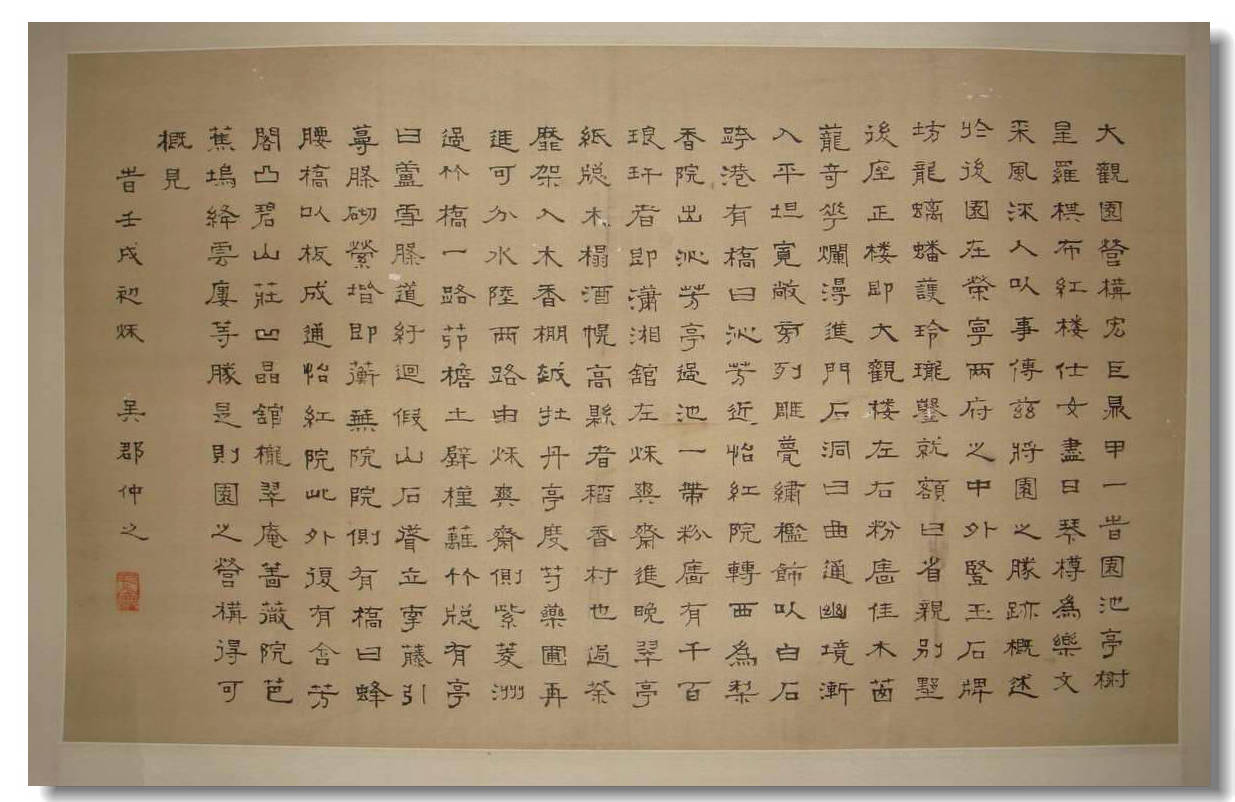 大觀園營構宏巨鼎甲一昔園池亭樹
星羅棋布紅樓仕女盡日琴樽為樂文
采風深入以事傳茲將園之勝跡概述
於後園在榮寧兩府之中外豎玉石牌
坊龍螭蟠護玲瓏鑿就額曰省親別墅
後座正樓即大觀樓左右粉垣佳木茵
蘢奇花爛漫進門石洞曰曲通幽境漸
入平坦寬敞旁列雕甍繡檻飾以白石
跨港有橋曰沁芳近怡紅院轉西為梨
香院出沁芳亭過池一帶粉牆有千百
琅玕者即瀟湘館左秋爽齋進晚翠亭
紙牕木榻酒幌高縣者稻香村也過荼
蘼架入木香棚越牡丹亭度芍藥圃再
進可分水陸兩路由秋爽齋側紫菱洲
過竹橋一路茆檐土壁槿蘺竹牕有亭
曰蘆雪勝道紆迴假山石聳立穿藤引
蔓勝砌縈堦即蘅蕪院院側有橋曰蜂
腰橋以板成通怡紅院此外復有含芳
閣凸碧山莊凹晶館櫳翠庵薔薇院芭
蕉塢絳雲廔等勝是則園之營構得可
概見
昔壬戌初秋 吴郡仲之